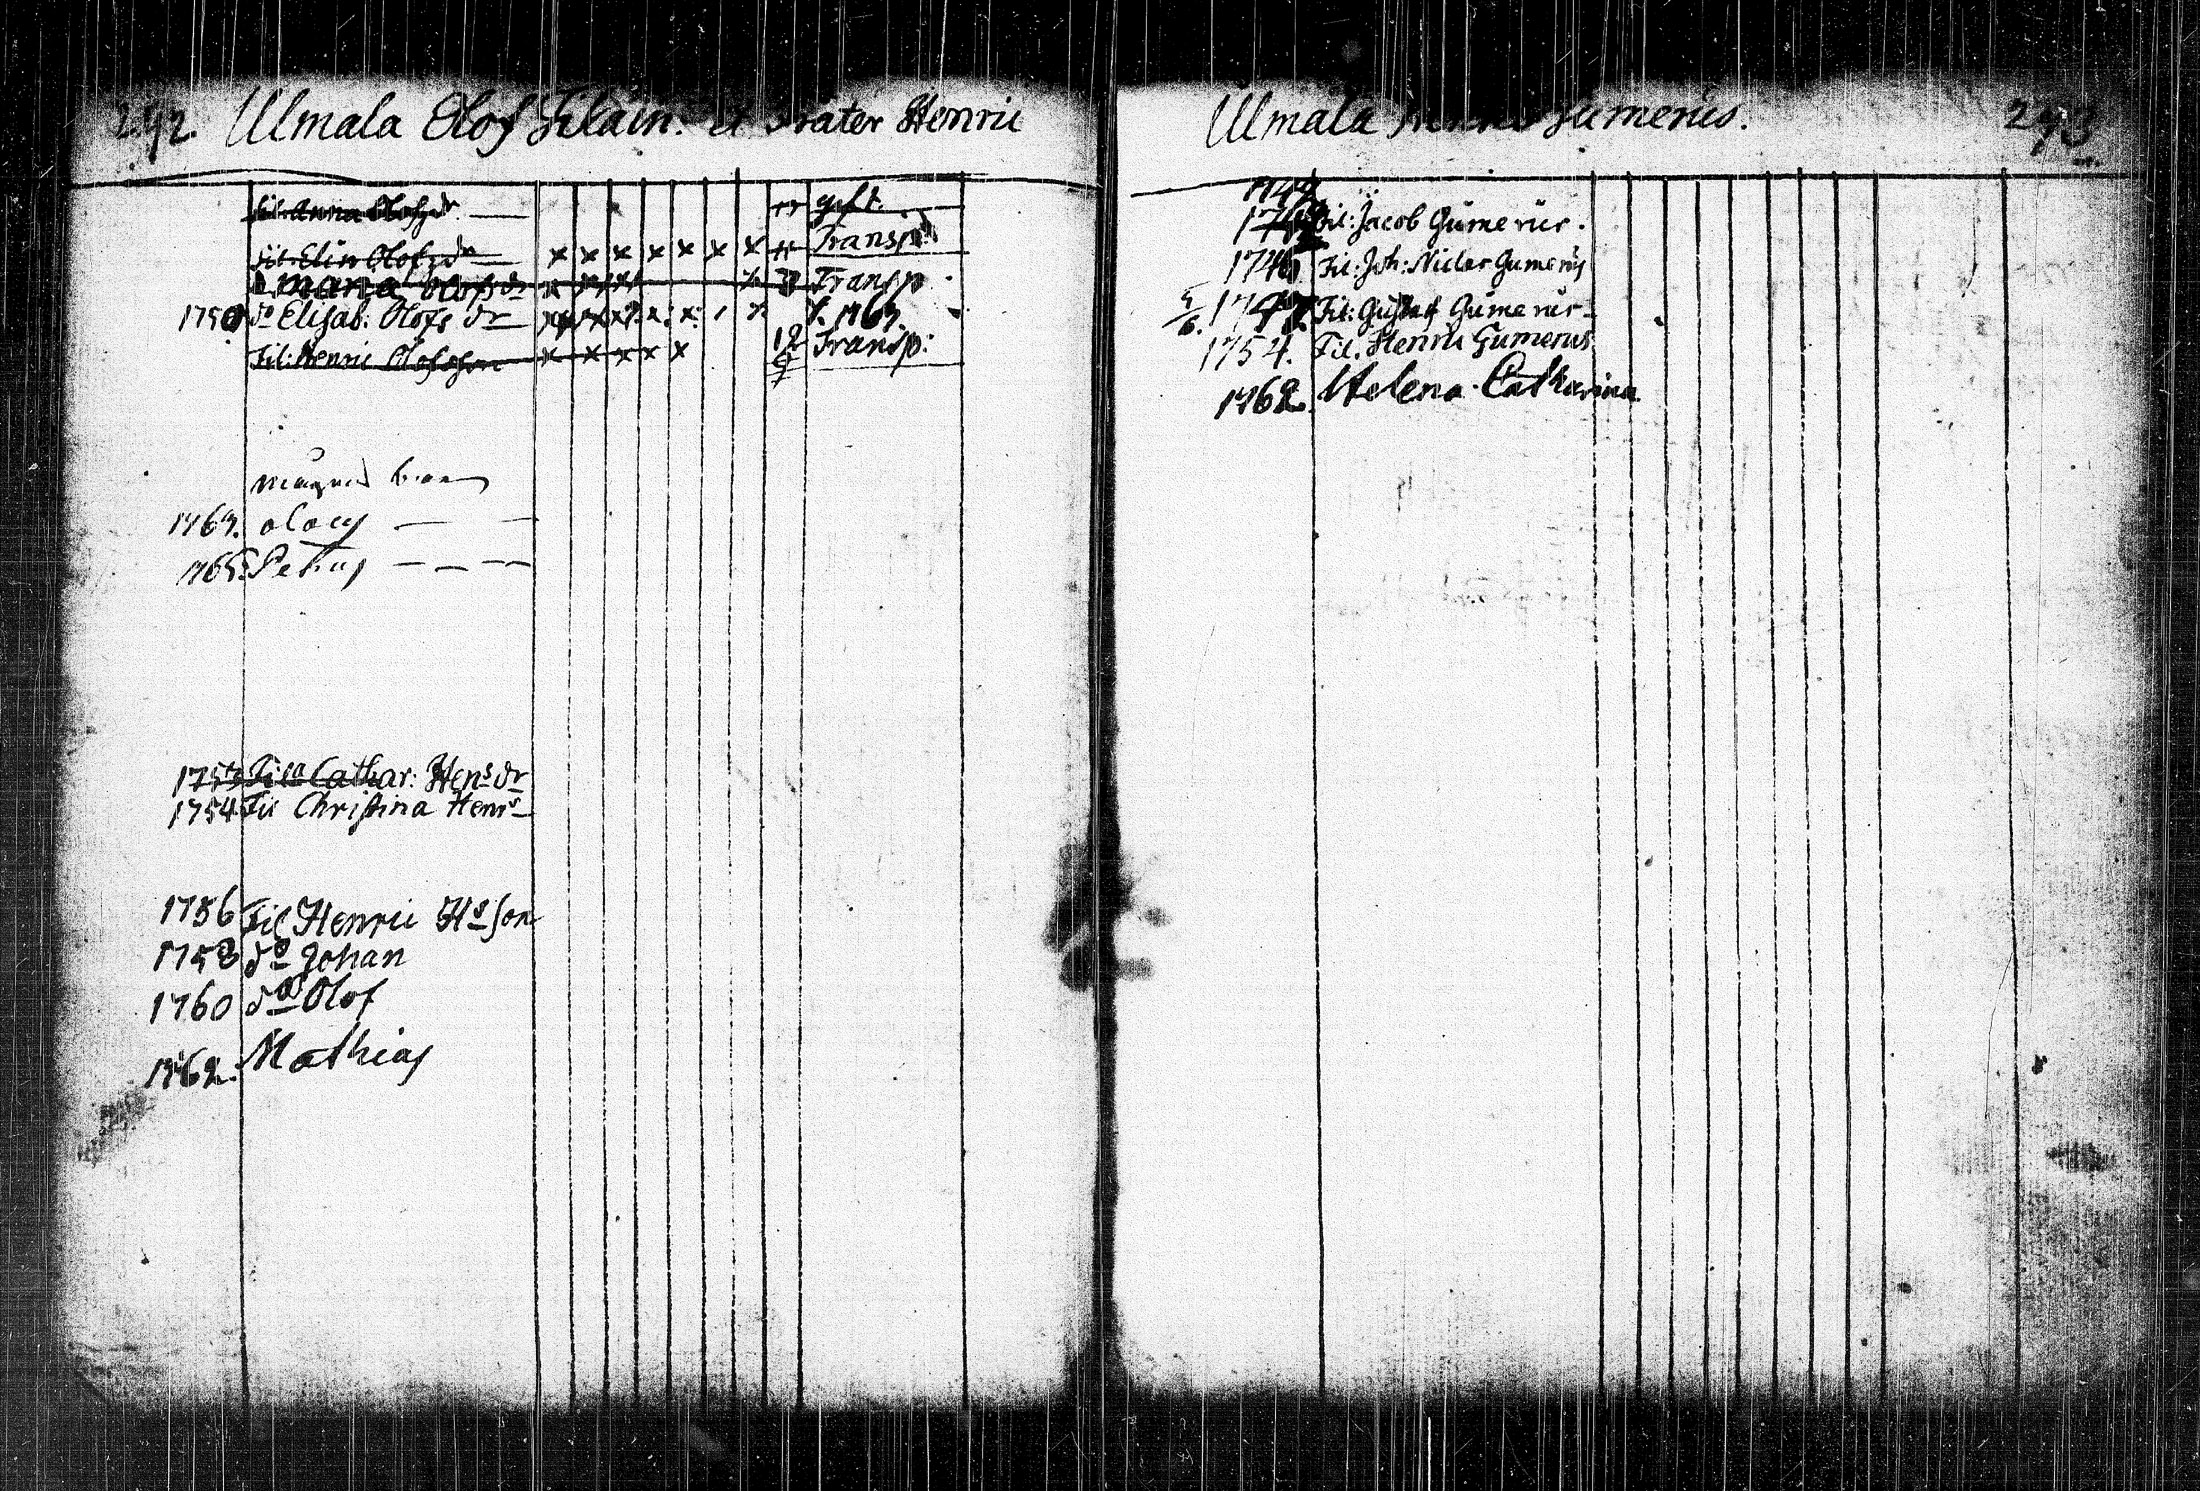 292. Ulmala Olof Filain: et Frater Henric
Fil: Anna Olofsdr gift
Fil: Elin Olofsdr x x x x x x x Transp:
Do Maria Olofsdr Transp
1750 do Elisab: Olofs dr 1763.
Fil: Henric Olofsson x x x x x 12 Transp:
Magnus
1763. Olaus
1765. Petrus
1753 Filia Cathar: Hens dr
1754 Fil Christina Henrs
1756 Fil Henric Hs Son
1758 do Johan
1760 do Olof
1762. Mathias
Ulmala Gumerus. 293
1744
Fil: Jacob Gumerus.
1746 Fil: Joh: Niclas Gumerus
1747 Fil: Gustaf Gumerus
1754. Fil. Henric Gumerus
1762. Helena Catharina